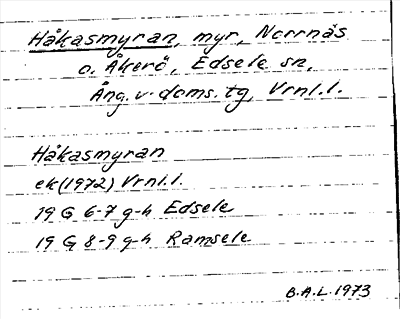 Håkasmyran, myr, Norrnäs
o. Åkerö, Edsele sn,
Ång. v. doms. tg, Vrnl.l.
Håkasmyran
ek (1972) Vrnl.l.
19 G 6-7 g-h Edsele
19 G 8-9 g-h Ramsele
B.A.L. 1973